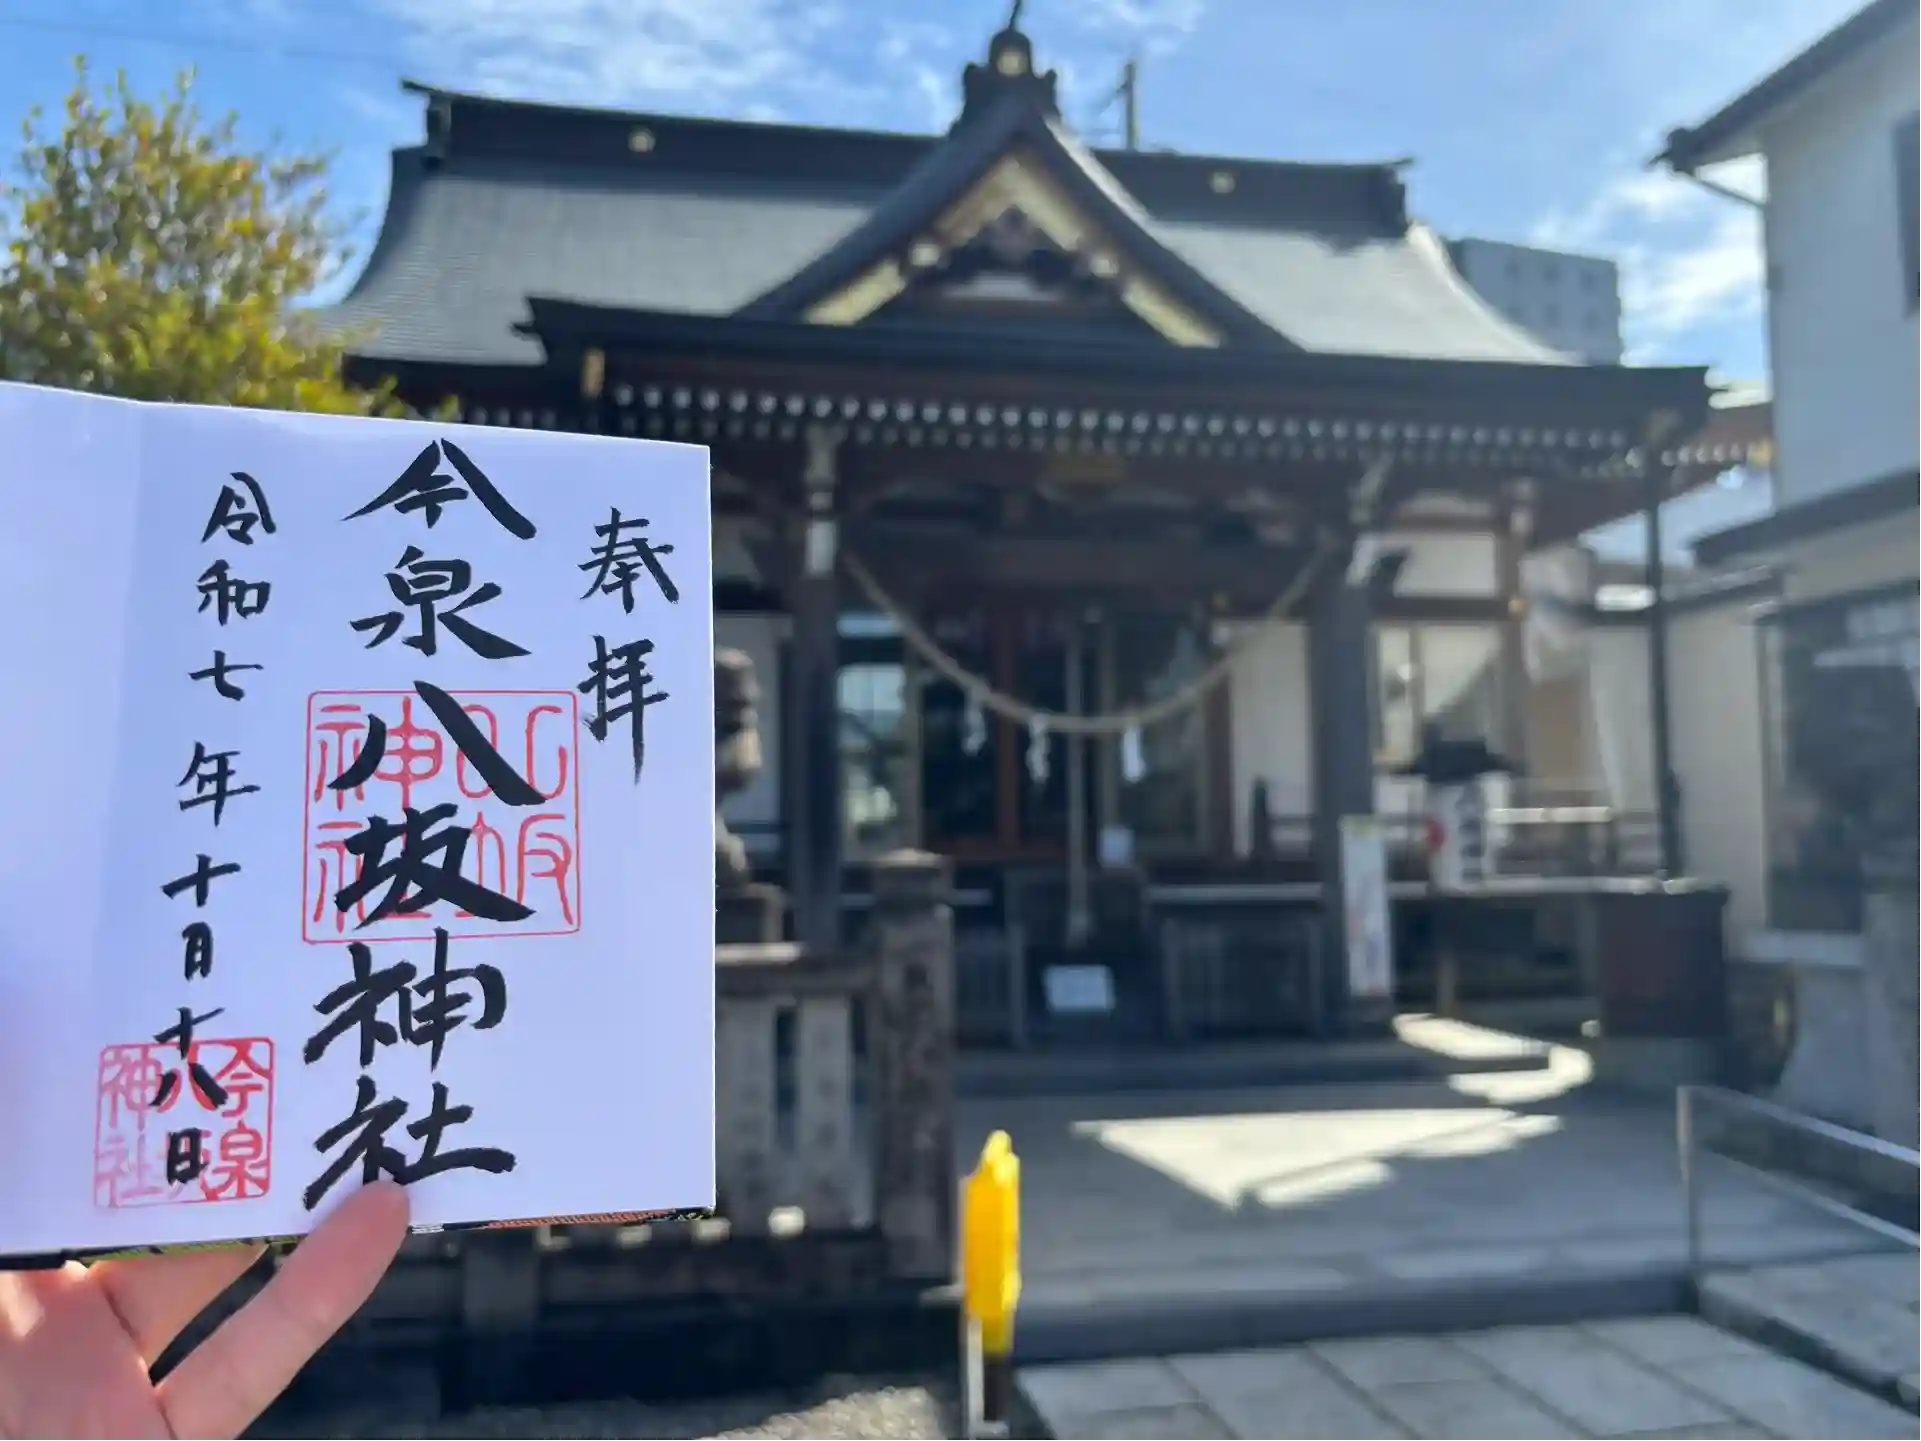 奉拝
今泉八坂神社
八坂神社
令和七年十月十八日
今泉八坂神社